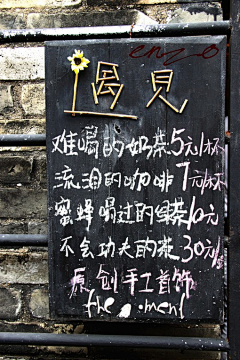 enzo
遇見
难喝的奶茶5元/杯
流泪的咖啡7元/杯
蜜蜂喝过的绿茶10元
不会功夫的茶30元/壶
原创手工首饰
the moment